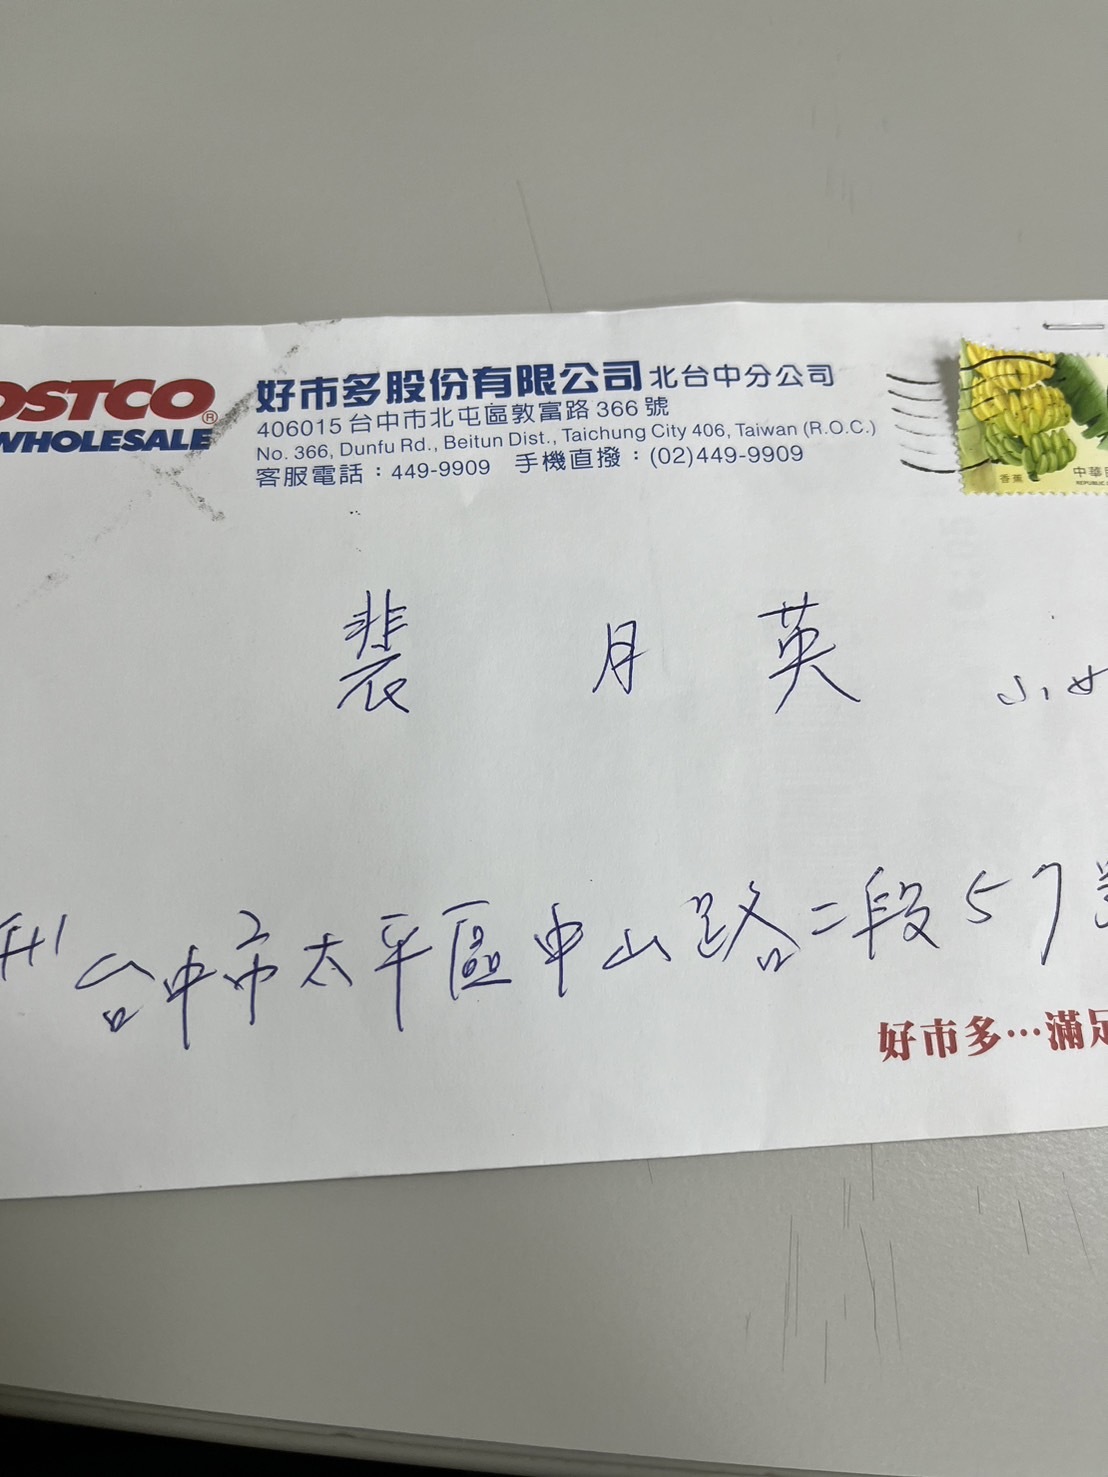 OSTCO®
WHOLESALE
好市多股份有限公司 北台中分公司
406015 台中市北屯區敦富路 366 號
No. 366, Dunfu Rd., Beitun Dist., Taichung City 406, Taiwan (R.O.C.)
客服電話：449-9909 手機直撥：(02)449-9909
香蕉
中華
REPUBLIC
裴月英 小姐
台中市太平區中山路二段57號
好市多…滿足